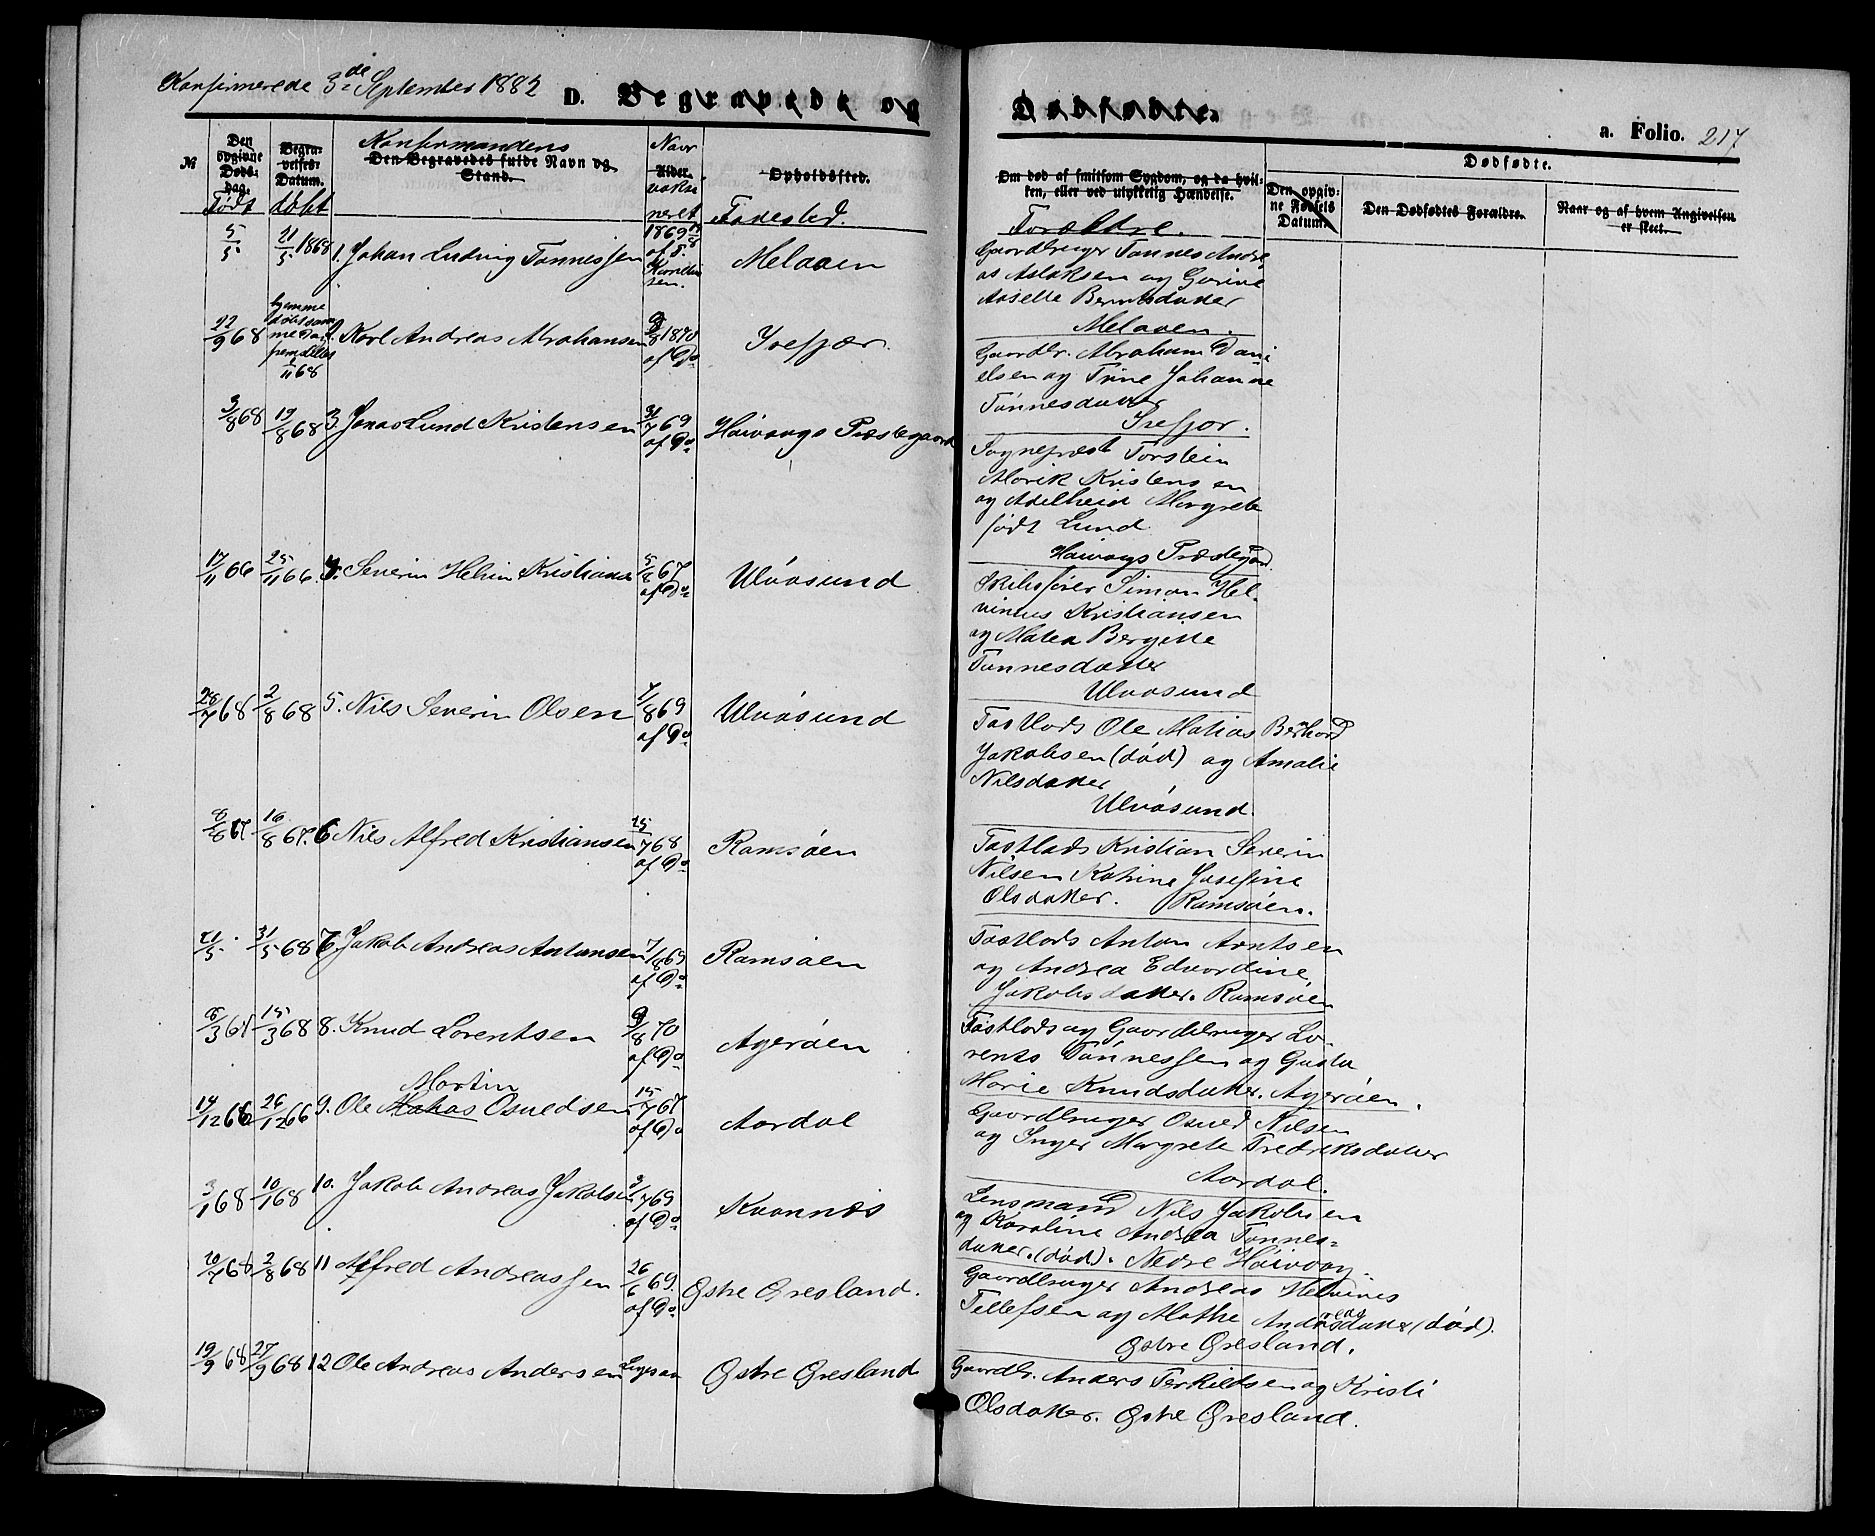 Konfirmerede 3de September 1882
D. Begravede og Dødfødte.
a. Folio. 217
№
Den opgivne Døds-Dag. Født
Begravelses-Datum. døbt
Den Begravedes fulde Navn og Stand. Konfirmandens
Naar Alder. vaksineret
Opholdssted. Fødested.
Om død af smitsom Sygdom, og da hvilken, eller ved ulykkelig Hændelse. Forældre.
Dødfødte.
Den opgivne Fødsels Datum.
Den Dødfødtes Forældre.
Naar og af hvem Angivelsen er skeet.
5/5 21/5 1868 1. Johan Ludvig Tønnessen 1869 af Melaaen
Gaardbruger Tønnes Andreas Aslaksen og Gurine
Berntsdatter
Melaaen.
22/9 68 hjemme døbt samme Dag fremstilles 1/11 68 2. Karl Andreas Abrahamsen 9/8 1870 af Do Isefjær.
Gaardbr. Abraham Danielsen og Trine Johanne
Tønnesdatter
Isefjær.
3/8 68 19/8 68 3. Jonas Lund Kristensen 31/7 69 af Do Høivaags Præstegaard
Sognepræst Torstein
Alarik Kristensen
og Adelheid Margrete
født Lund
Høivaags Præstegaard.
17/11 66 25/11 66 4. Severin Helvin Kristiansen 5/8 67 af Do Ulvøsund
Skibsfører Simon Helvinius Kristiansen
og Matea Bergitte
Tønnesdatter
Ulvøsund
28/7 68 2/8 68 5. Nils Severin Olsen 7/8 69 af Do Ulvøsund
Fastlods Ole Matias Bernhard
Jakobsen (død) og Amalie
Nilsdatter
Ulvøsund.
8/8 67 16/8 67. 6 Nils Alfred Kristiansen 25/7 68 af Do Ramsøen
Fastlods Kristian Severin
Nilsen Katrine Josefine
Olsdatter. Ramsøen.
21/5 31/5 68 7. Jakob Andreas Antonsen 7/8 69 af Do Ramsøen
Fastlods Anton Arntsen
og Andrea Edvardine
Jakobsdatter. Ramsøen
8/3 68 15/3 68 8. Knud Lorentsen 9/8 70 af Do Agerøen
Fastlods og Gaardbruger Lorents Tønnessen og Gusta
Marie Knudsdatter. Agerøen.
14/12 66 26/12 66 9. Ole Matias Martin Osuldsen 15/7 67 af Do Aardal
Gaardbruger Osuld Nilsen
og Inger Margrete Fredriksdatter
Aardal.
3/1 68 10/1 68 10. Jakob Andreas Jakobsen 2/7 69 af Do Kvannes
Lensmand Nils Jakobsen
og Karoline Andrea Tønnesdatter. (død). Nedre Høivaag.
20/7 68 2/8 68 11 Alfred Andreassen 26/6 69. af Do Østre Øresland.
Gaardbruger Andreas Helvines
Tellefsen og Mathe Andreasdatter (død).
Østre Øresland.
19/9 68 27/9 68 12 Ole Andreas Andersen Ligesaa Østre Øresland
Gaardbr. Anders Terkildsen og Kristi
Olsdatter. Østre Øresland.